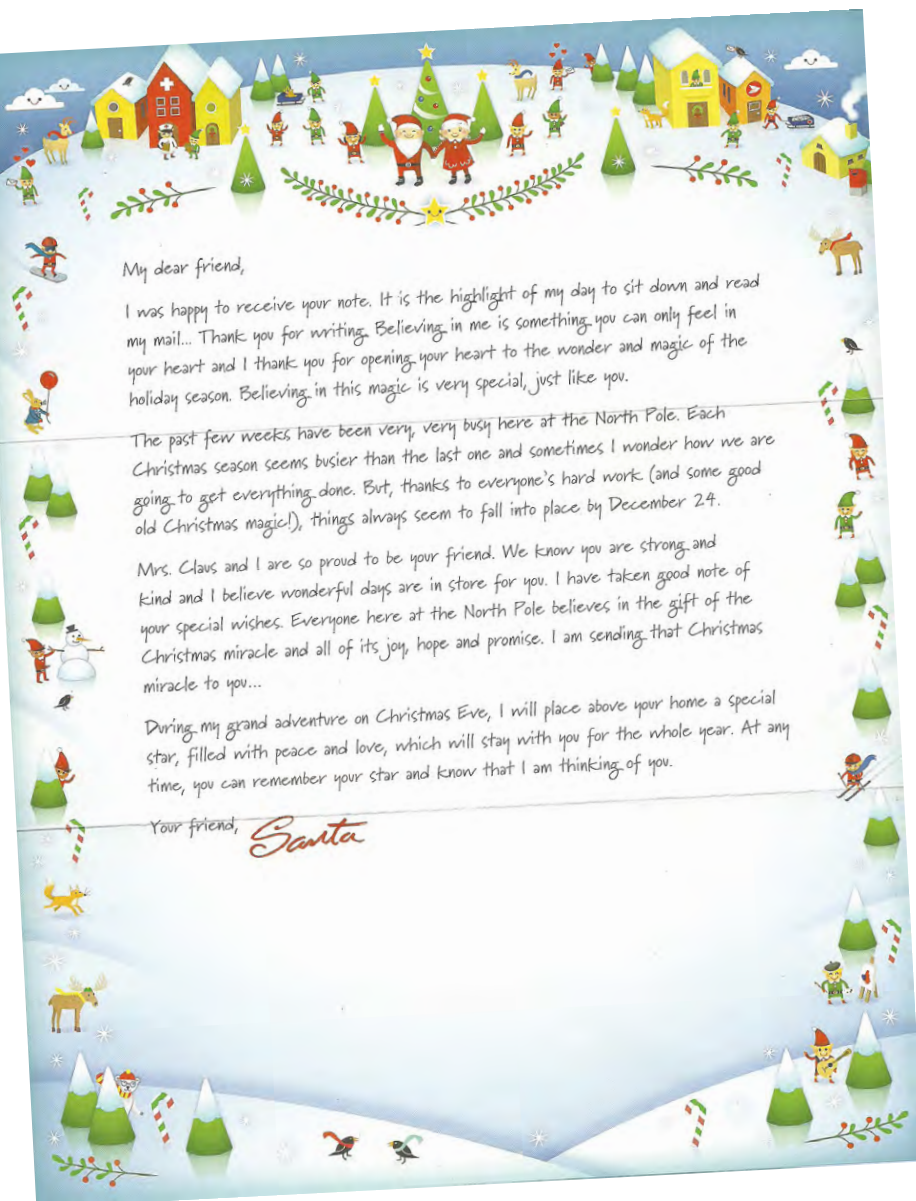 My dear friend,
I was happy to receive your note. It is the highlight of my day to sit down and read
my mail... Thank you for writing. Believing in me is something you can only feel in
your heart and I thank you for opening your heart to the wonder and magic of the
holiday season. Believing in this magic is very special, just like you.
The past few weeks have been very, very busy here at the North Pole. Each
Christmas season seems busier than the last one and sometimes I wonder how we are
going to get everything done. But, thanks to everyone's hard work (and some good
old Christmas magic!), things always seem to fall into place by December 24.
Mrs. Claus and I are so proud to be your friend. We know you are strong and
kind and I believe wonderful days are in store for you. I have taken good note of
your special wishes. Everyone here at the North Pole believes in the gift of the
Christmas miracle and all of its joy, hope and promise. I am sending that Christmas
miracle to you...
During my grand adventure on Christmas Eve, I will place above your home a special
star, filled with peace and love, which will stay with you for the whole year. At any
time, you can remember your star and know that I am thinking of you.
Your friend, Santa